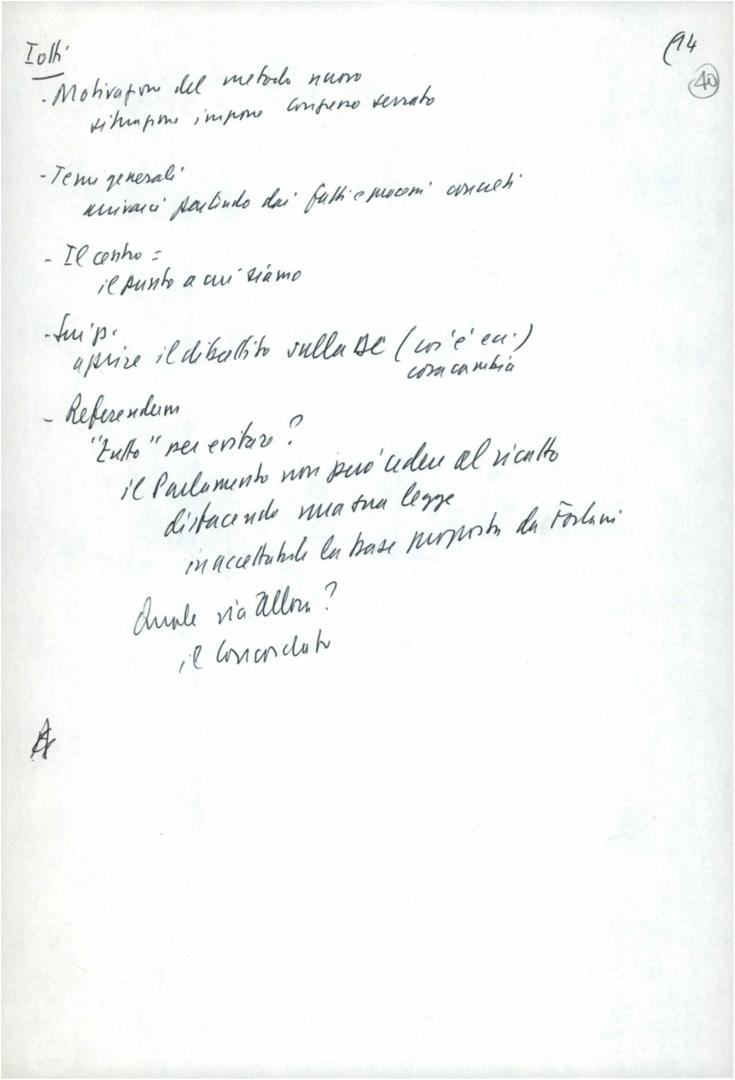 Iotti
(14
40
- Motivazione del metodo nuovo
situazione impone congresso serrato
- Temi generali
arrivarci partendo dai fatti e processi concreti
- Il centro =
il punto a cui siamo
aprire il dibattito sulla DC (cos'è ecc.)
cosa cambia
- Referendum
"tutto" per evitare?
il Parlamento non può cedere al ricatto
disfacendo una sua legge
inaccettabile la base proposta da Forlani
Quale via allora?
il Concordato